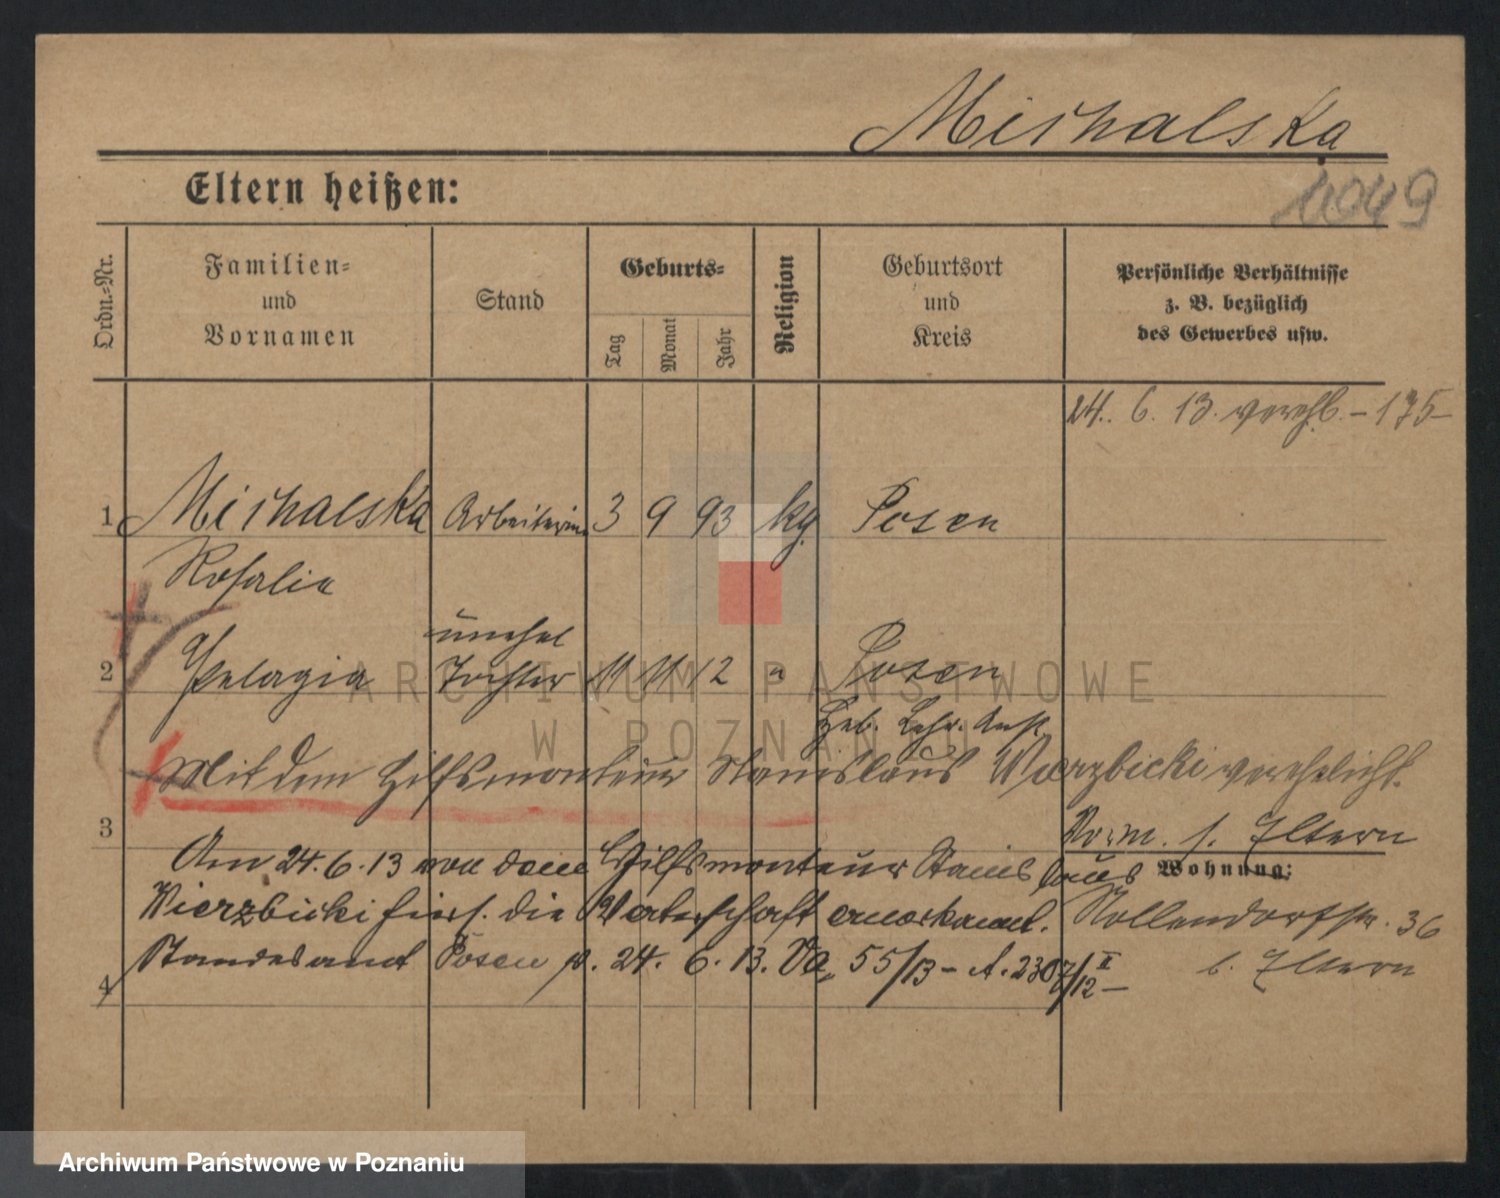 Michalska
Eltern heißen:
4049
Ordn.-Nr.
Familien-
und
Vornamen
Stand
Geburts-
Tag
Monat
Jahr
Religion
Geburtsort
und
Kreis
Persönliche Verhältnisse
z. B. bezüglich
des Gewerbes usw.
24. 6. 13. verehl. - 175-
1 Michalska Arbeiterin 3 9 93 kg. Posen
Rosalie
unehel
2 Pelagia Tochter 11 11 12 " Posen
Heb. Lehr. Anst.
ARCHIWUM PAŃSTWOWE
W POZNANIU
Mit dem Hilfsmonteur Stanislaus Wierzbicki verehelicht.
3
Vorm. s. Eltern
Am 24. 6. 13 von dem Hilfsmonteur Stanislaus
Wohnung:
Wierzbicki hiers. die Vaterschaft anerkannt.
Nollendorfstr. 36
Standesamt Posen v. 24. 6. 13. Va, 55/13 - A. 2307/12 - II
b. Eltern
4
Archiwum Państwowe w Poznaniu